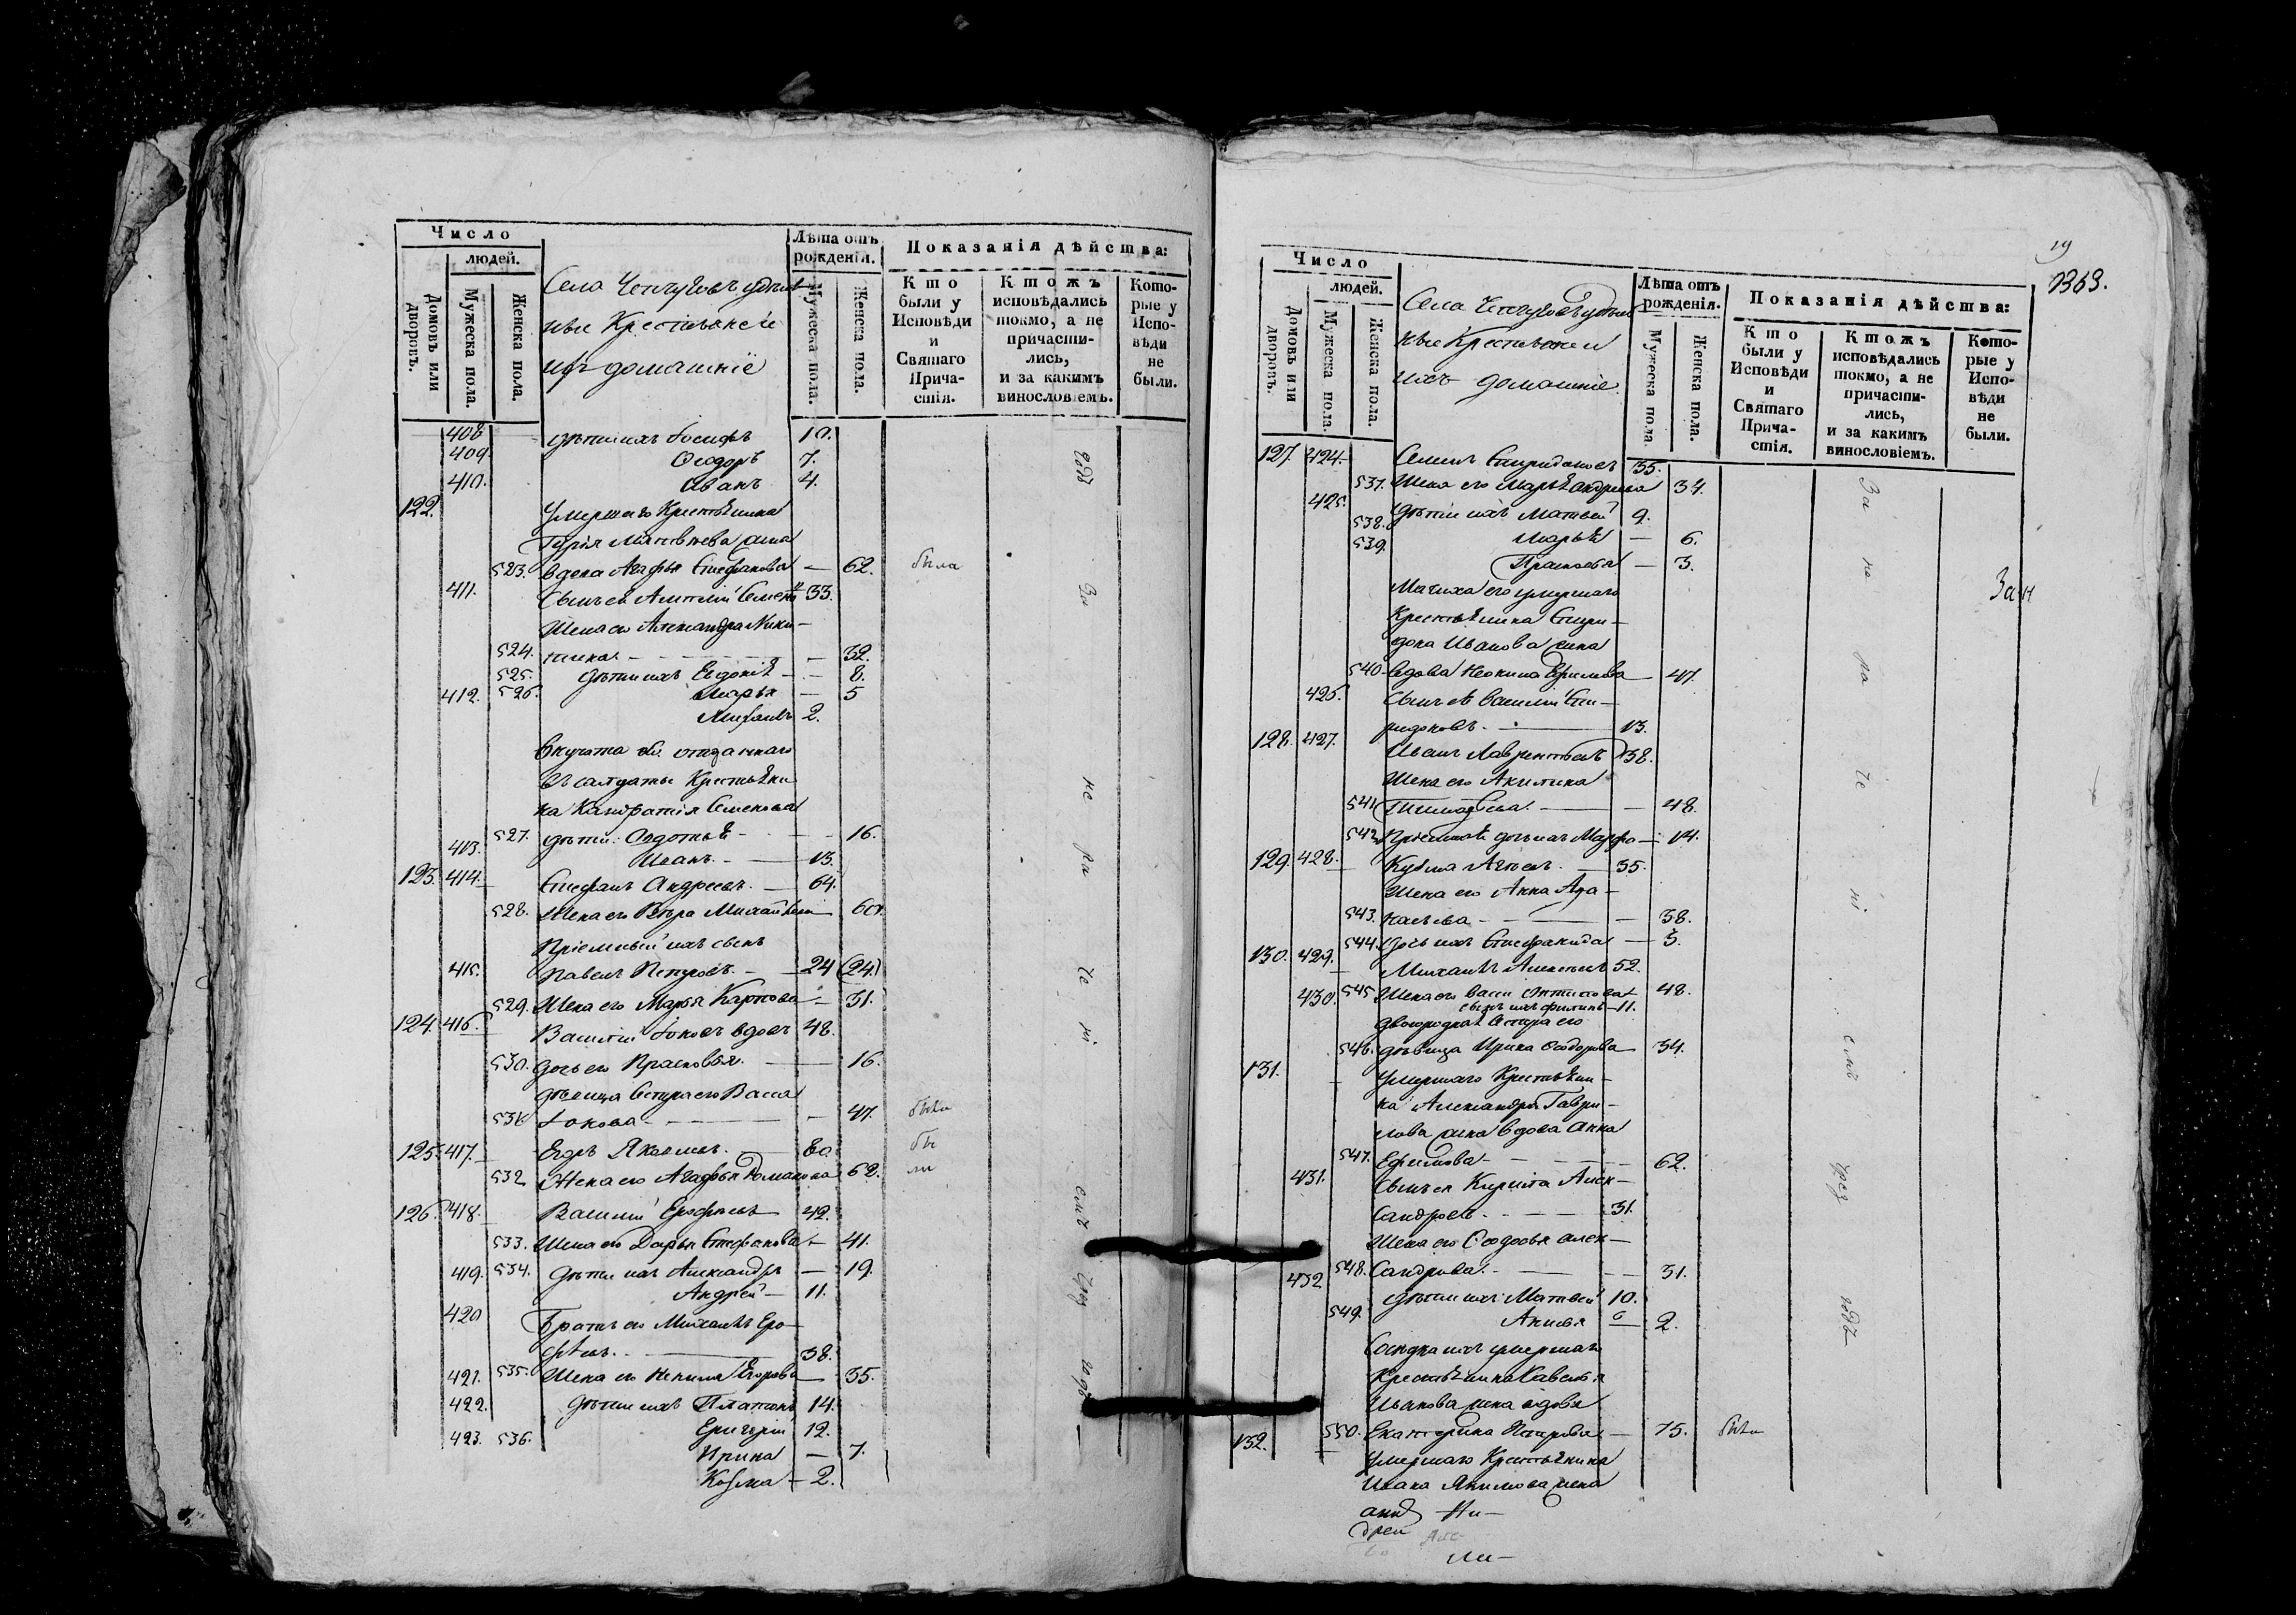 Число
людей.
Домовъ или дворовъ.
Мужеска пола.
Женска пола.
Села удѣль
ные Крестьяне и
ихъ домашніе
Лѣта отъ рожденія.
Мужеска пола.
Женска пола.
Показанія дѣйства:
Кто были у Исповѣди и Святаго Причастія.
Ктожъ исповѣдались токмо, а не причастились, и за какимъ винословіемъ.
Которые у Исповѣди не были.
408 дѣти ихъ Іосифъ 10.
409 Ѳеодоръ 7.
410. Иванъ 4.
122. Умершаго Крестьянина
Гурія Матвѣева жена
523. вдова Агафья Стефанова — 62. была
411. Сынъ ея Семенъ 33.
Жена его Александра Ники—
524. тина — — 32.
525. дѣти ихъ Евдокія — — 8.
412. 526. Марья — 5
Михаилъ 2.
отданнаго
въ салдаты Крестьяни
на Кандратія Семенова
527. дѣти: Ѳедотья — — 16.
413. Иванъ. — — 13.
123. 414. Стефанъ Андреевъ. — 64.
528. Жена его Михайлова 60.
Пріемный ихъ сынъ
415. Павелъ Петровъ. — 24 (24.)
529. Жена его Марья Карпова — 31.
124. 416. Василій Іоновъ вдовъ 48.
530. дочь его Прасковья. — 16.
дѣвица Сестра его Васса
531. Іонова — — 47. была
125. 417. Егоръ Яковлевъ. — 60 бы
532 Жена его Агафья Романова 62. ли
126. 418. Василій Ерофѣевъ 42.
533. Жена его Дарья Стефанова — 41.
419. 534. дѣти ихъ Александра — 19.
Андрей — 11.
420 Братъ его Михаилъ Еро—
фѣевъ. — 38.
421. 535. Жена его Ненила Егорова — 35.
422. дѣти ихъ Платонъ 14.
Григорій 12.
423. 536. Ирина — 7.
Козма — 2.
За не ра че ні емъ чрез годъ
19
1363.
Число
людей.
Домовъ или дворовъ.
Мужеска пола.
Женска пола.
Села удѣль
ные Крестьяне и
ихъ домашніе
Лѣта отъ рожденія.
Мужеска пола.
Женска пола.
Показанія дѣйства:
Кто были у Исповѣди и Святаго Причастія.
Ктожъ исповѣдались токмо, а не причастились, и за какимъ винословіемъ.
Которые у Исповѣди не были.
127. 424. Семенъ Спиридоновъ 35.
537. Жена его Марья Андреева 34.
425. дѣти ихъ Матвей 9.
538. Марья — 6.
539. Прасковья — 3.
Мачиха его умершаго
Крестьянина Спири—
дона Иванова жена
540. вдова Неонила Ефимова — 47.
426. Сынъ ея Василій Спи—
ридоновъ. — 13.
128. 427. Иванъ Лаврентьевъ 38.
Жена его Акилина
541 Тимофѣева. — — 48.
542 дочь ихъ Марфа — 14.
129. 428. Кузма — 35.
Жена его Анна Афа—
543. насьева — — 38.
544. дочь ихъ Стефанида — 5.
130. 429. Михаилъ Алексеевъ 52.
545 Жена его Васса Антипова 48.
430. сынъ ихъ Филипъ — 11.
двоюродная Сестра его
546. дѣвица Ирина Ѳеодорова 34.
131. Умершаго Крестьяни—
на Александра Гаври—
лова жена вдова Анна
547. Ефимова — — 62.
431. Сынъ ея Кирила Алек—
сандровъ. — 31.
Жена его Ѳеодосья Алек—
548. сандрова. — — 31.
432 дѣти ихъ Матвей 10.
549. Анисья — 2.
Сосѣдка ихъ умершаго
Крестьянина Савелья
Иванова жена вдова
550. Екатерина Петрова — 75. была
132. Умершаго Крестьянина
Ивана Якимова жена
За не ра че ні емъ чрез годъ
За н